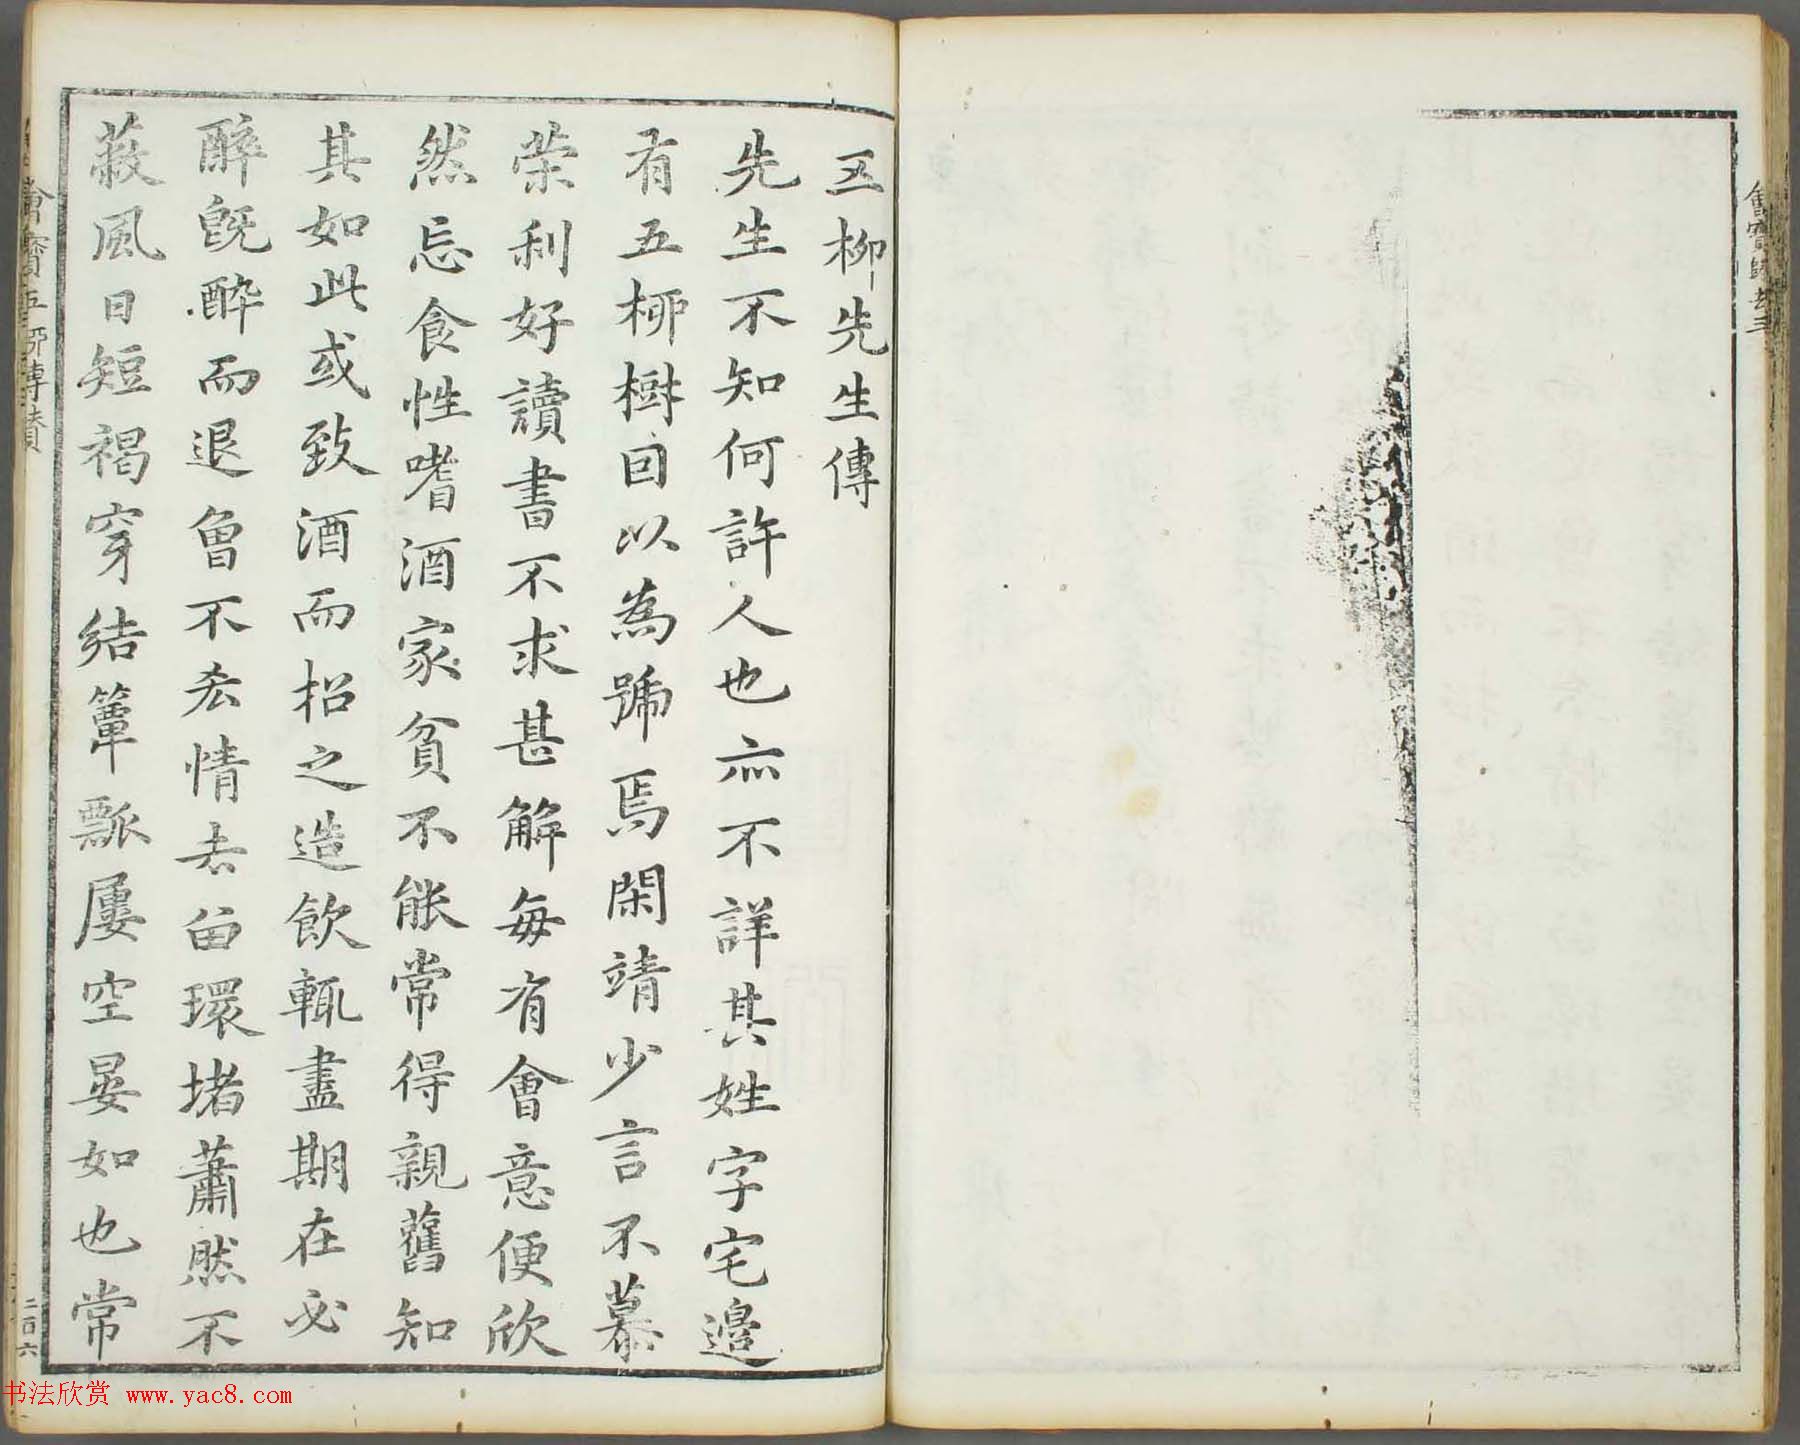 五柳先生傳
先生不知何許人也亦不詳其姓字宅邊
有五柳樹因以為號焉閑靖少言不慕
榮利好讀書不求甚解每有會意便欣
然忘食性嗜酒家貧不能常得親舊知
其如此或致酒而招之造飲輒盡期在必
醉既醉而退曾不吝情去留環堵蕭然不
蔽風日短褐穿結簞瓢屢空晏如也常
二百六
书法欣赏 www.yac8.com